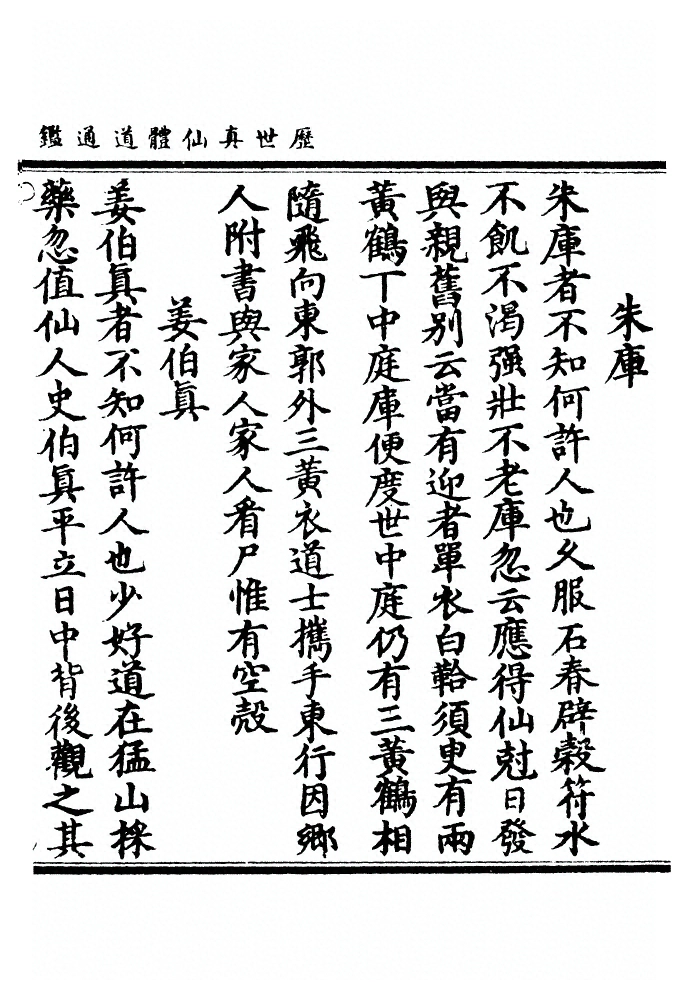 歷世真仙體道通鑑
朱庫
朱庫者不知何許人也久服石春辟穀符水
不飢不渴强壯不老庫忽云應得仙尅日發
與親舊别云當有迎者單衣白鞈須臾有兩
黃鶴丅中庭庫便度世中庭仍有三黃鶴相
隨飛向東郭外三黃衣道士攜手東行因鄉
人附書與家人家人看尸惟有空殼
姜伯真
姜伯真者不知何許人也少好道在猛山採
藥忽值仙人史伯真平立日中背後觀之其